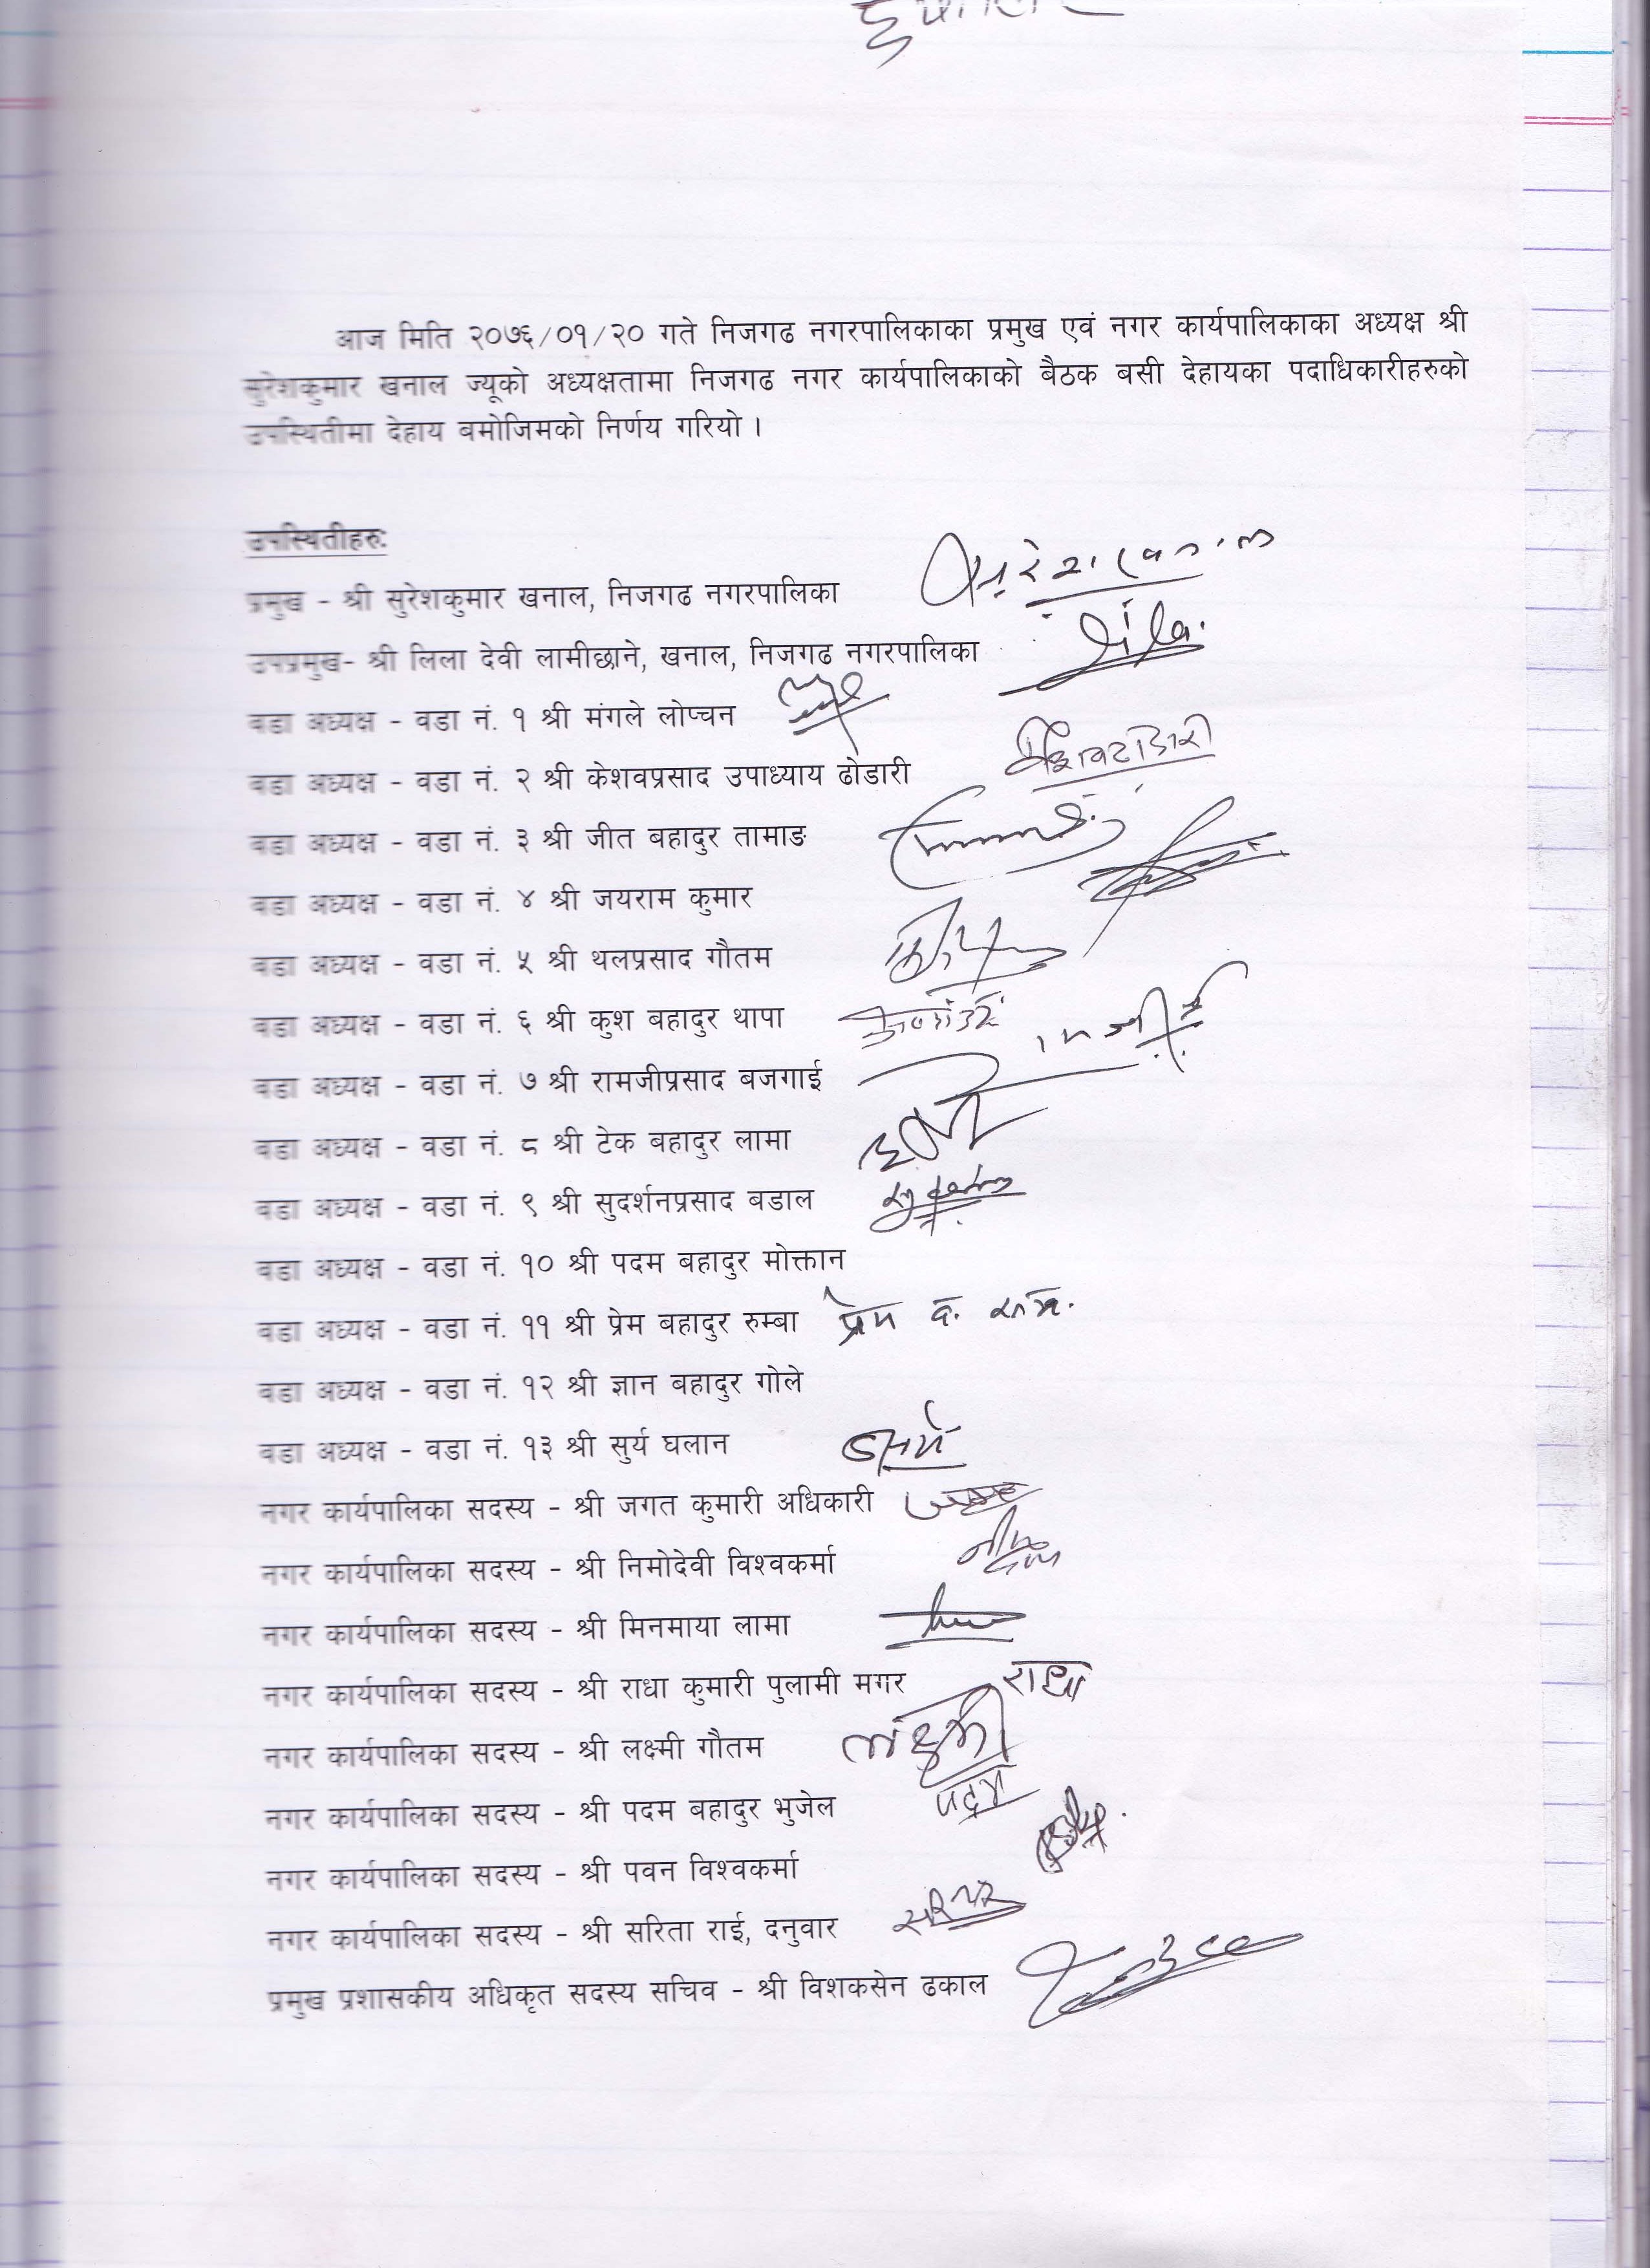 आज मिति २०७६/०१/२० गते निजगढ नगरपालिकाका प्रमुख एवं नगर कार्यपालिकाका अध्यक्ष श्री
सुरेशकुमार खनाल ज्यूको अध्यक्षतामा निजगढ नगर कार्यपालिकाको बैठक बसी देहायका पदाधिकारीहरुको
उपस्थितीमा देहाय बमोजिमको निर्णय गरियो ।
उपस्थितीहरु:
प्रमुख - श्री सुरेशकुमार खनाल, निजगढ नगरपालिका
उपप्रमुख- श्री लिला देवी लामीछाने, खनाल, निजगढ नगरपालिका
वडा अध्यक्ष - वडा नं. १ श्री मंगले लोप्चन
वडा अध्यक्ष - वडा नं. २ श्री केशवप्रसाद उपाध्याय ढोडारी
वडा अध्यक्ष - वडा नं. ३ श्री जीत बहादुर तामाङ
वडा अध्यक्ष - वडा नं. ४ श्री जयराम कुमार
वडा अध्यक्ष - वडा नं. ५ श्री थलप्रसाद गौतम
वडा अध्यक्ष - वडा नं. ६ श्री कुश बहादुर थापा
वडा अध्यक्ष - वडा नं. ७ श्री रामजीप्रसाद बजगाई
वडा अध्यक्ष - वडा नं. ८ श्री टेक बहादुर लामा
वडा अध्यक्ष - वडा नं. ९ श्री सुदर्शनप्रसाद बडाल
वडा अध्यक्ष - वडा नं. १० श्री पदम बहादुर मोक्तान
वडा अध्यक्ष - वडा नं. ११ श्री प्रेम बहादुर रुम्बा प्रेम ब.
वडा अध्यक्ष - वडा नं. १२ श्री ज्ञान बहादुर गोले
वडा अध्यक्ष - वडा नं. १३ श्री सुर्य घलान
नगर कार्यपालिका सदस्य - श्री जगत कुमारी अधिकारी
नगर कार्यपालिका सदस्य - श्री निमोदेवी विश्वकर्मा
नगर कार्यपालिका सदस्य - श्री मिनमाया लामा
नगर कार्यपालिका सदस्य - श्री राधा कुमारी पुलामी मगर राधा
नगर कार्यपालिका सदस्य - श्री लक्ष्मी गौतम लक्ष्मी
नगर कार्यपालिका सदस्य - श्री पदम बहादुर भुजेल पदम
नगर कार्यपालिका सदस्य - श्री पवन विश्वकर्मा
नगर कार्यपालिका सदस्य - श्री सरिता राई, दनुवार
प्रमुख प्रशासकीय अधिकृत सदस्य सचिव - श्री विशकसेन ढकाल